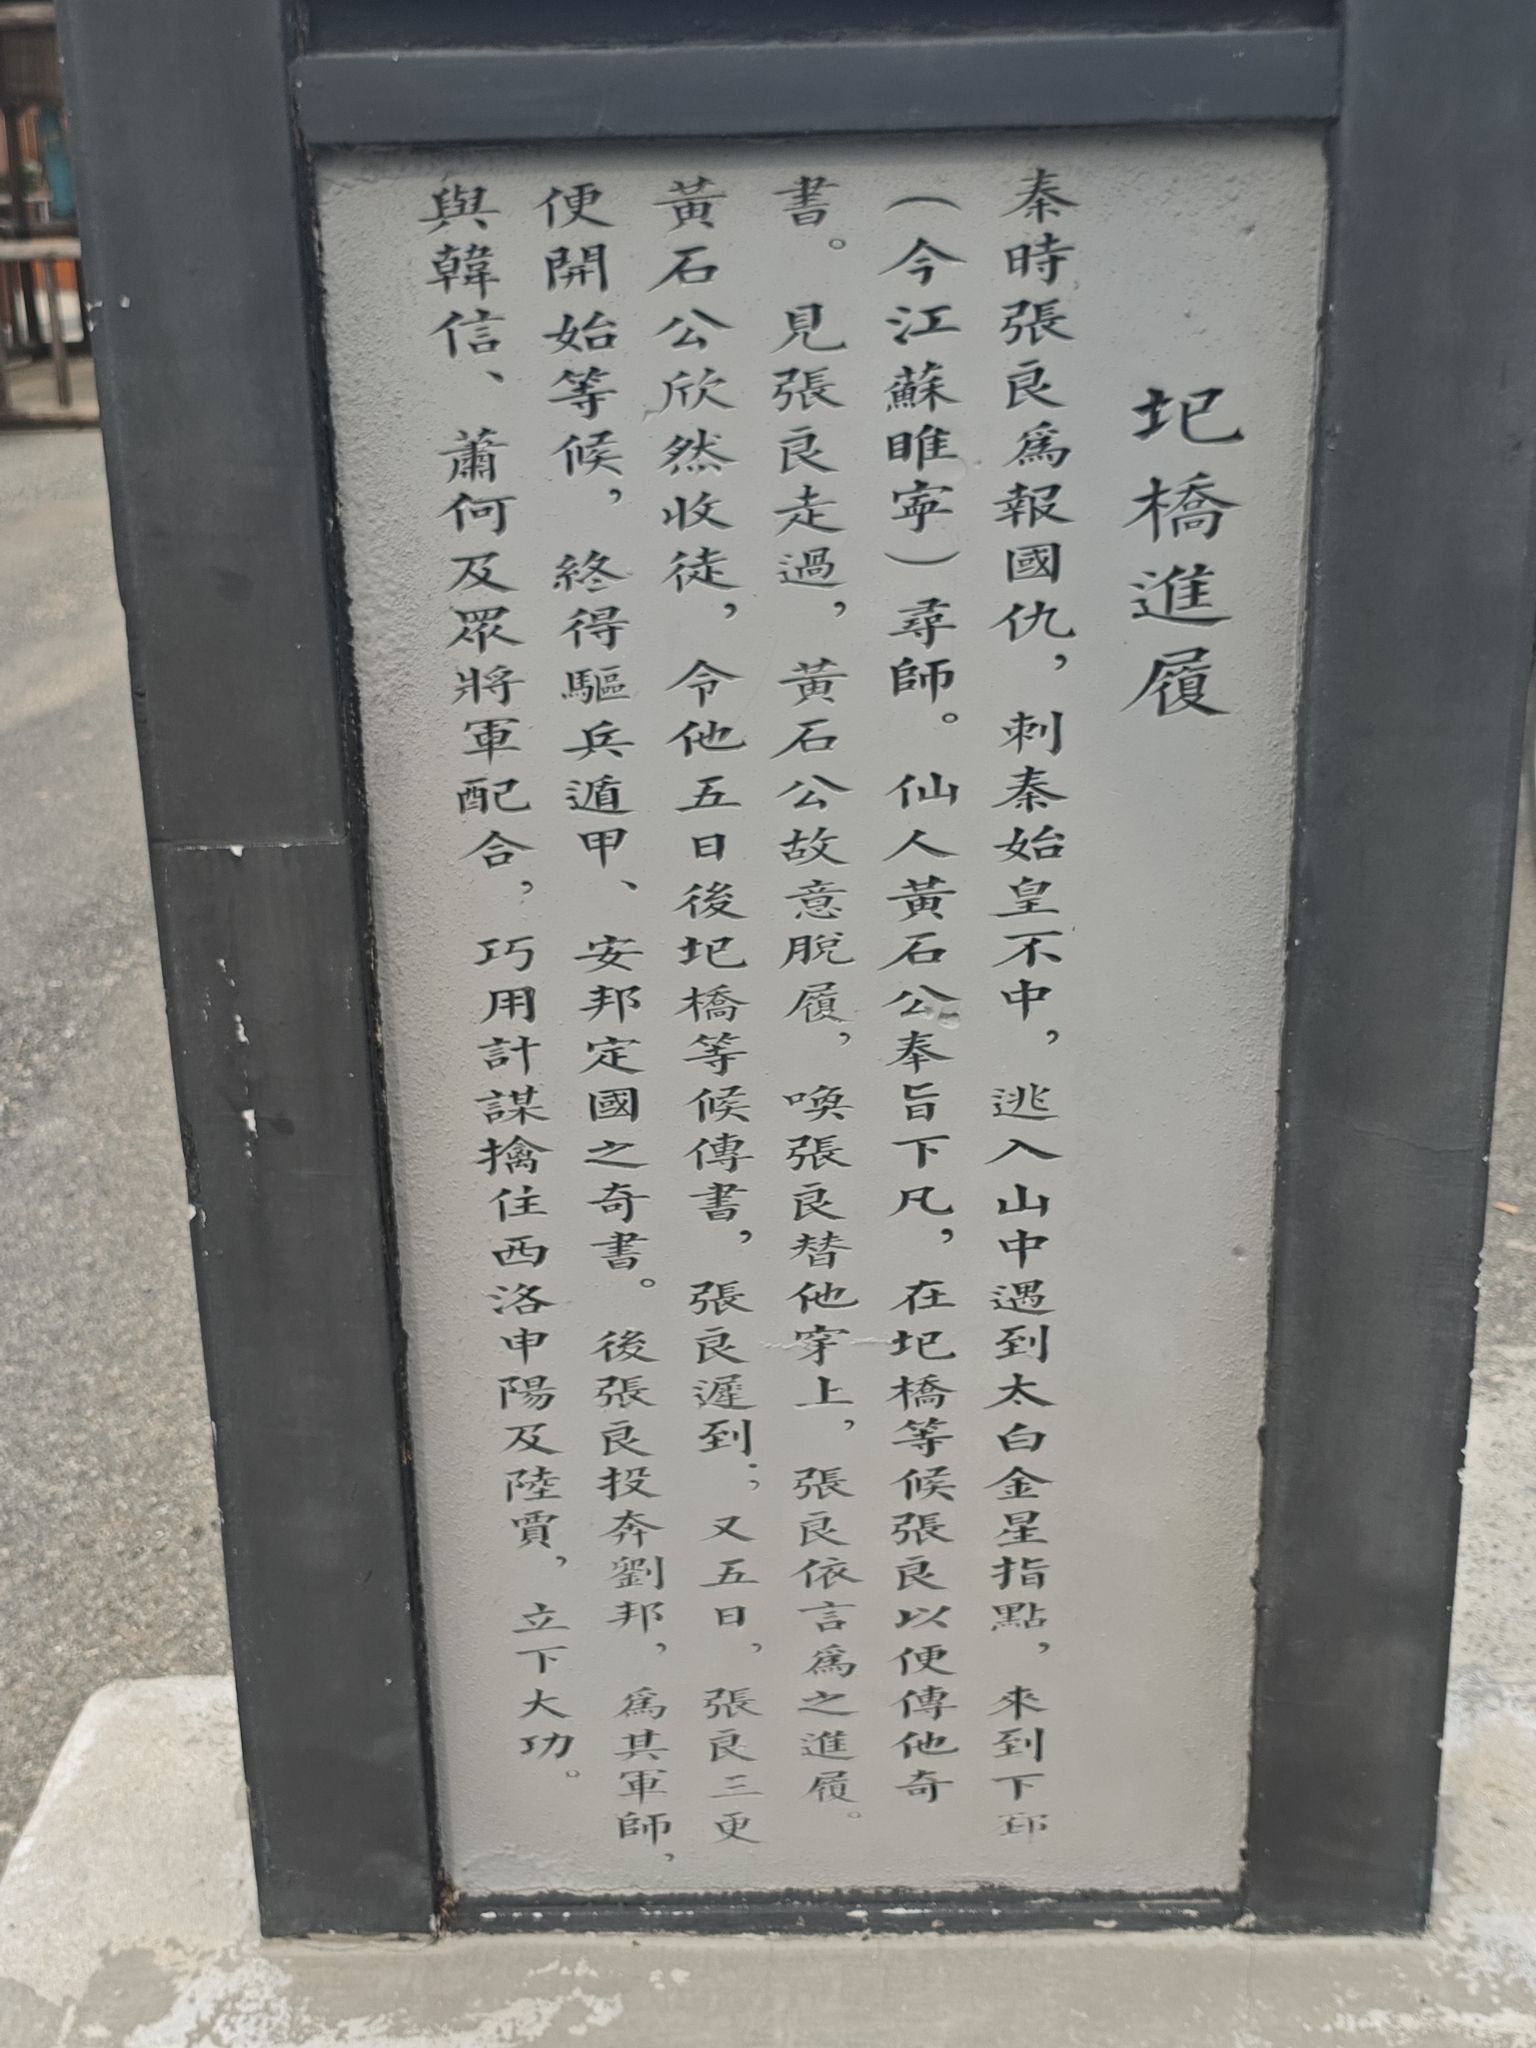 圯橋進履
秦時張良爲報國仇，刺秦始皇不中，逃入山中遇到太白金星指點，來到下邳
（今江蘇睢寧）尋師。仙人黃石公奉旨下凡，在圯橋等候張良以便傳他奇
書。見張良走過，黃石公故意脫履，喚張良替他穿上，張良依言爲之進履。
黃石公欣然收徒，令他五日後圯橋等候傳書，張良遲到；又五日，張良三更
便開始等候，終得驅兵遁甲、安邦定國之奇書。後張良投奔劉邦，爲其軍師，
與韓信、蕭何及眾將軍配合，巧用計謀擒住西洛申陽及陸賈，立下大功。